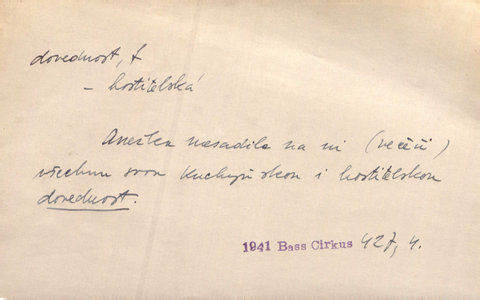 dovednost, f
– hostitelská
Anežka nasadila na ni (večeři)
všechnu svou kuchyňskou i hostitelskou
dovednost.
1941 Bass Cirkus 427, 4.